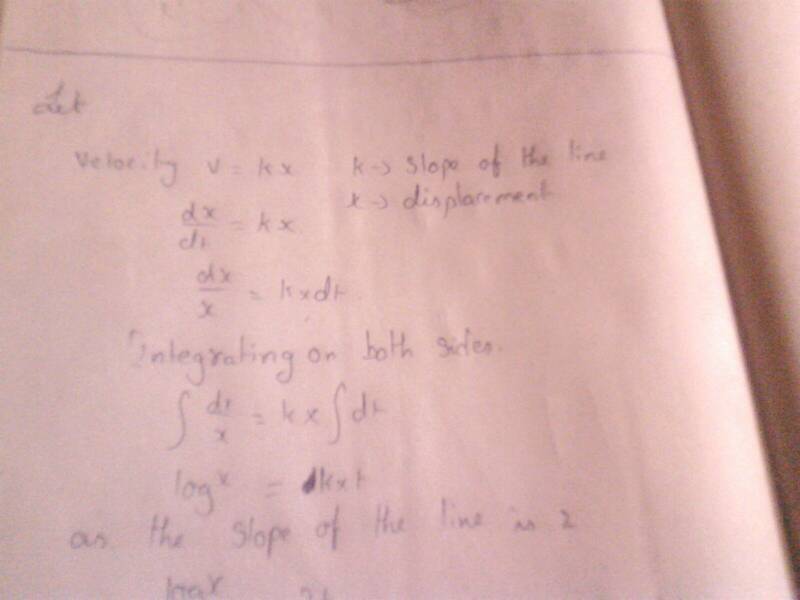 Let
Velocity v = kx k → slope of the line
x → displacement
dx/dt = kx
dx/x = k x dt
Integrating on both sides.
∫ dx/x = k x ∫ dt
log x = k x t
as the slope of the line is 2
log x 2t